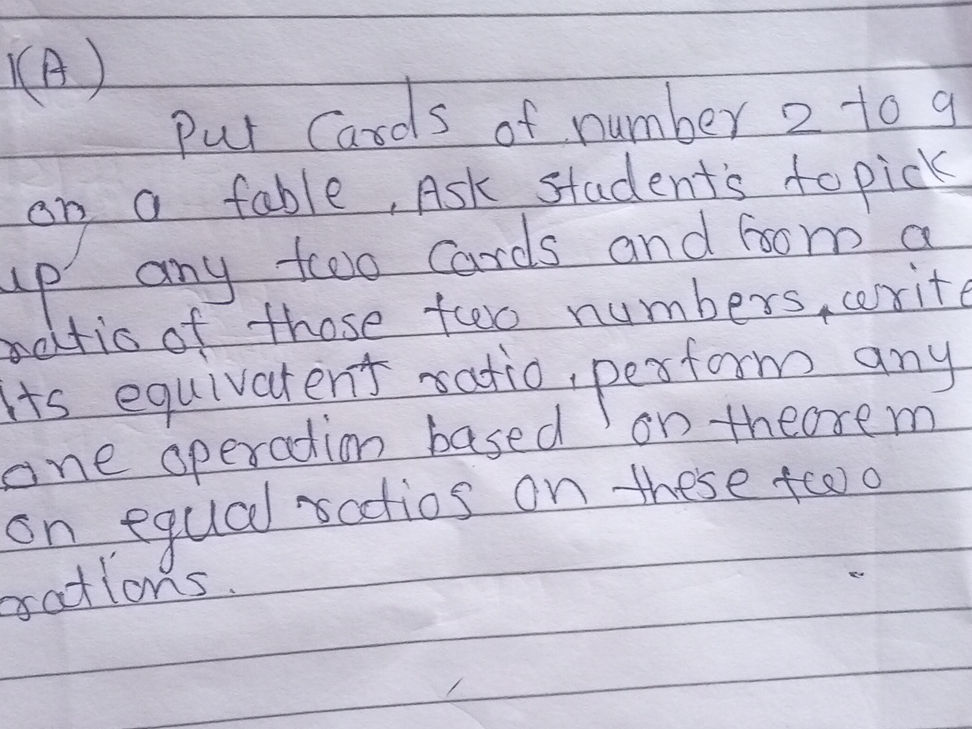 1(A)
Put Cards of number 2 to 9
on a table, Ask student's to pick
up any two Cards and from a
ratio of those two numbers, write
its equivalent ratio, perform any
one operation based on theorem
on equal ratios on these two
rations.